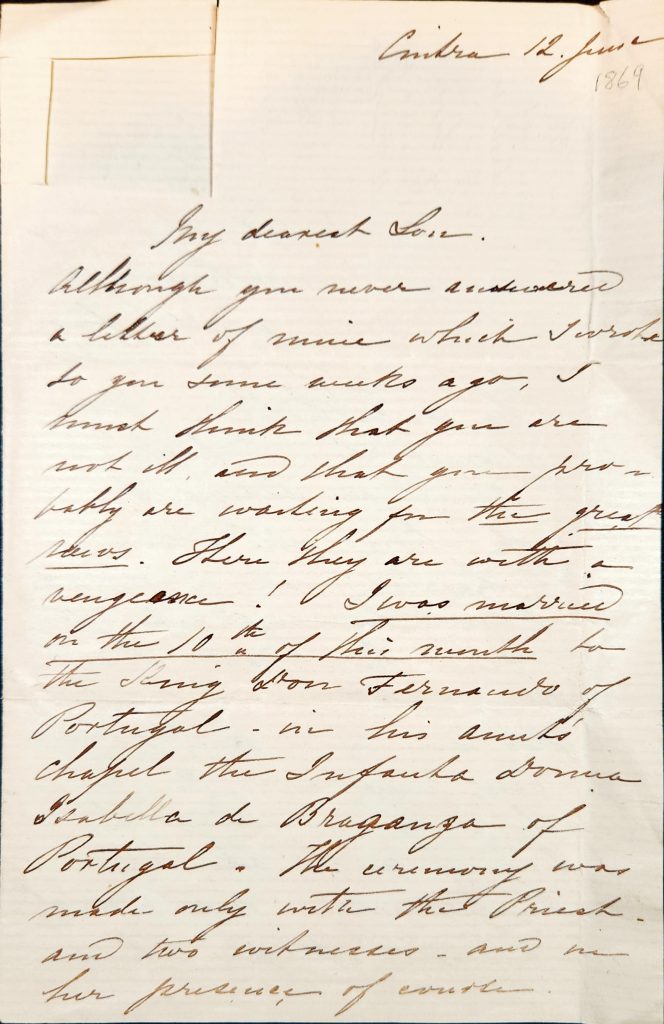 Cintra 12. June
1869
My dearest Son.
Although you never answered
a letter of mine which I wrote
to you some weeks ago, I
must think that you are
not ill, and that you pro-
bably are waiting for the great
news. Here they are with a
vengeance! I was married
on the 10th of this month to
the King Don Fernando of
Portugal - in his aunt's
chapel the Infanta Donna
Isabella de Braganza of
Portugal. The ceremony was
made only with the Priest -
and two witnesses - and in
her presence of course.